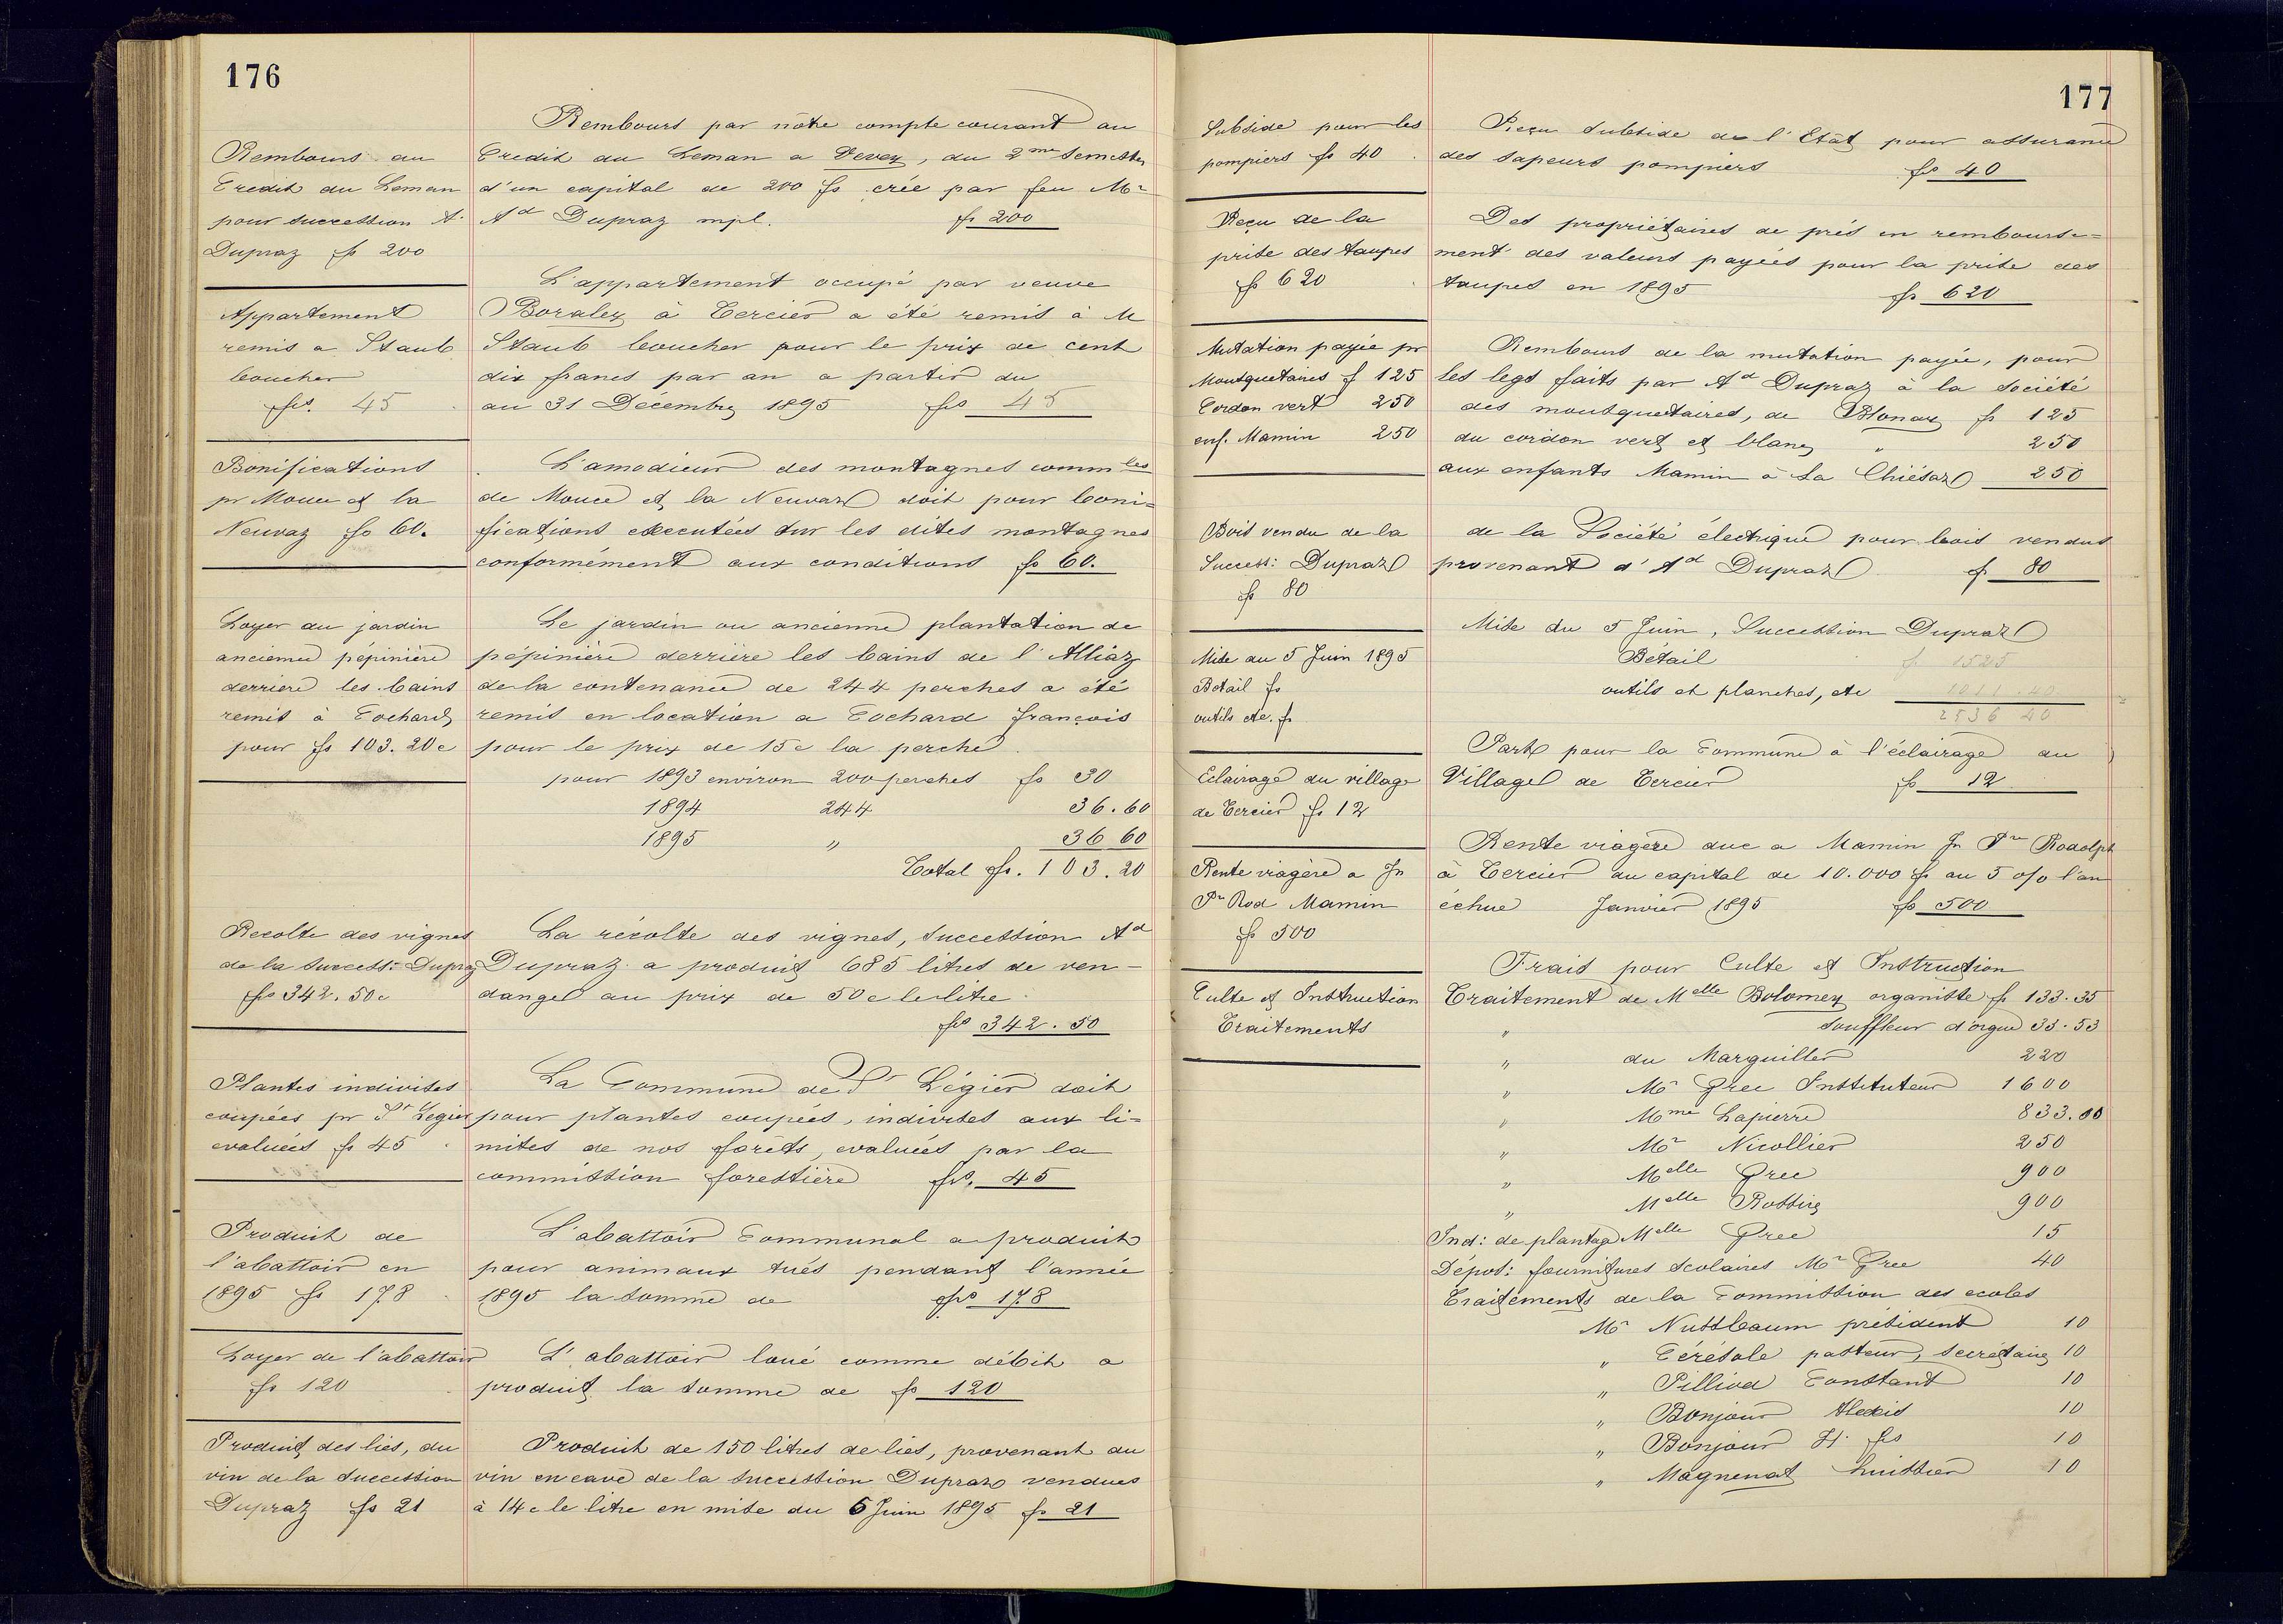 176
Rembours au
Credit du Leman
pour succession A.
Dupraz fs 200
Rembours par nôtre compte courant au
Credit du Leman a Vevey, du 2me Semestre
d'un capital de 200 fs crée par feu Mr
Ad Dupraz mpl. fs 200
Appartement
remis a Staub
boucher
frs. 45
L'appartement occupé par veuve
Boraley à Tercier a été remis à M
Staub boucher pour le prix de cent
dix francs par an a partir du
au 31 Décembre 1895 frs 45
Bonifications
pr Mouce et la
Neuvaz fs 60.
L'amodieur des montagnes commles
de Mouce et la Neuvaz doit pour boni=
fications executées sur les dites montagnes
conformément aux conditions fs 60.
Loyer du jardin
ancienne pépinière
derriere les bains
remis à Cochard
pour fs 103. 20c
Le jardin ou ancienne plantation de
pépinière derrière les bains de l'Alliaz
de la contenance de 244 perches a été
remis en location a Cochard françois
pour le prix de 15c la perche
pour 1893 environ 200 perches fs 30
1894 244 36.60
1895 " 36 60
Total fs. 103.20
Recolte des vignes
de la success: Dupraz
frs 342. 50c
La récolte des vignes, succession Ad
Dupraz a produit 685 litres de ven-
dange au prix de 50c le litre
frs 342.50
Plantes indivises
coupées pr St Legier
evaluées fs 45
La Commune de St Légier doit
pour plantes coupées, indivises aux li=
mites de nos forêts, evaluées par la
commission forestière frs. 45
Produit de
l'abattoir en
1895 fs 178
L'abattoir Communal a produit
pour animaux tués pendant l'année
1895 la somme de frs 178
Loyer de l'abattoir
fs 120
L'abattoir loué comme débit a
produit la somme de fs 120
Produit des lies, du
vin de la succession
Dupraz fs 21
Produit de 150 litres de lies, provenant du
vin en cave de la succession Dupraz vendues
à 14c le litre en mise du 6 Juin 1895 fs 21
177
Subside pour les
pompiers fs 40
Reçu subside de l'Etat pour assurance
des sapeurs pompiers fs 40
Reçu de la
prise des taupes
fs 620
Des propriétaires de prés en rembourse=
ment des valeurs payées pour la prise des
taupes en 1895 fs 620
Mutation payée pr
Mousquetaires f 125
Cordon vert 250
enf. Mamin 250
Rembours de la mutation payée, pour
les legs faits par Ad Dupraz à la Société
des mousquetaires, de Blonay fs 125
du cordon vert et blanc " 250
aux enfants Mamin à La Chiésaz 250
Bois vendu de la
Success: Dupraz
fs 80
de la Société électrique pour bois vendus
provenant d'Ad Dupraz f 80
Mise du 5 Juin 1895
Betail fs
outils etc. fs
Mise du 5 Juin, Succession Dupraz
Bétail f 1525
outils et planches, etc 1011.40
2536 40
Eclairage du village
de Tercier fs 12
Part pour la Commune à l'éclairage du
Village de Tercier fs 12
Rente viagère a Jn
Pre Rod Mamin
fs 500
Rente viagère due a Mamin Jn Pre Rodolph
à Tercier au capital de 10.000 fs au 5 o/o l'an
échue Janvier 1895 fs 500
Culte et Instruction
Traitements
Frais pour Culte et Instruction
Traitement de Melle Bolomey organiste fs 133.35
" souffleur d'orgue 33.53
" du Marguiller 220
" Mr Gree Instituteur 1600
" Mme Lapierre 833.00
" Mr Nicollier 250
" Melle Gree 900
" Melle Rossire 900
Ind: de plantage Melle Gree 15
Dépos: fournitures scolaires Mr Gree 40
Traitements de la Commission des ecoles
Mr Nussbaum président 10
" Cérésole pasteur, secrétaire 10
" Pilliod Constant 10
" Bonjour Alexis 10
" Bonjour H. fs 10
" Magnenat huissier 10